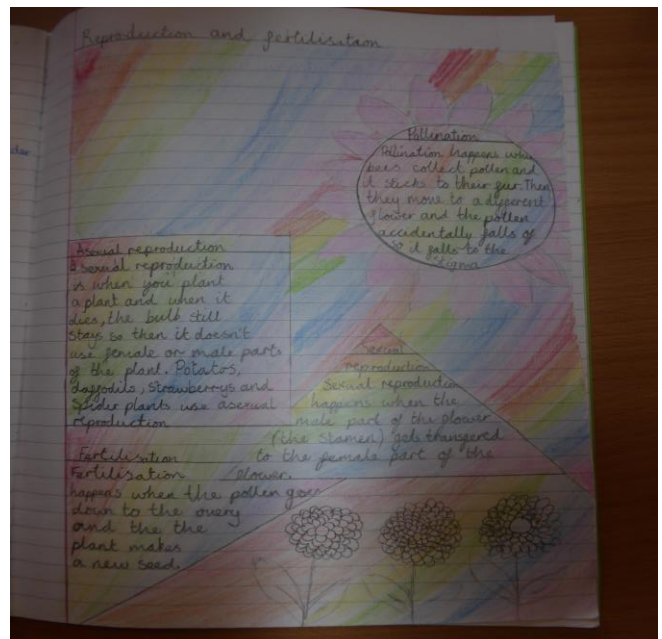 Reproduction and fertilisation
Pollination
Pollination happens when
bees collect pollen and
it sticks to their fur. Then
they move to a different
flower and the pollen
accidentally falls of
so it falls to the
stigma
Asexual reproduction
Asexual reproduction
is when you plant
a plant and when it
dies, the bulb still
stays so then it doesn't
use female or male parts
of the plant. Potatos,
daffodils, Strawberrys and
Spider plants use asexual
reproduction
Sexual
reproduction
Sexual reproduction
happens when the
male part of the flower
(the stamen) gets transfered
to the female part of the
flower.
Fertilisation
Fertilisation
happens when the pollen goes
down to the overy
and the the
plant makes
a new seed.